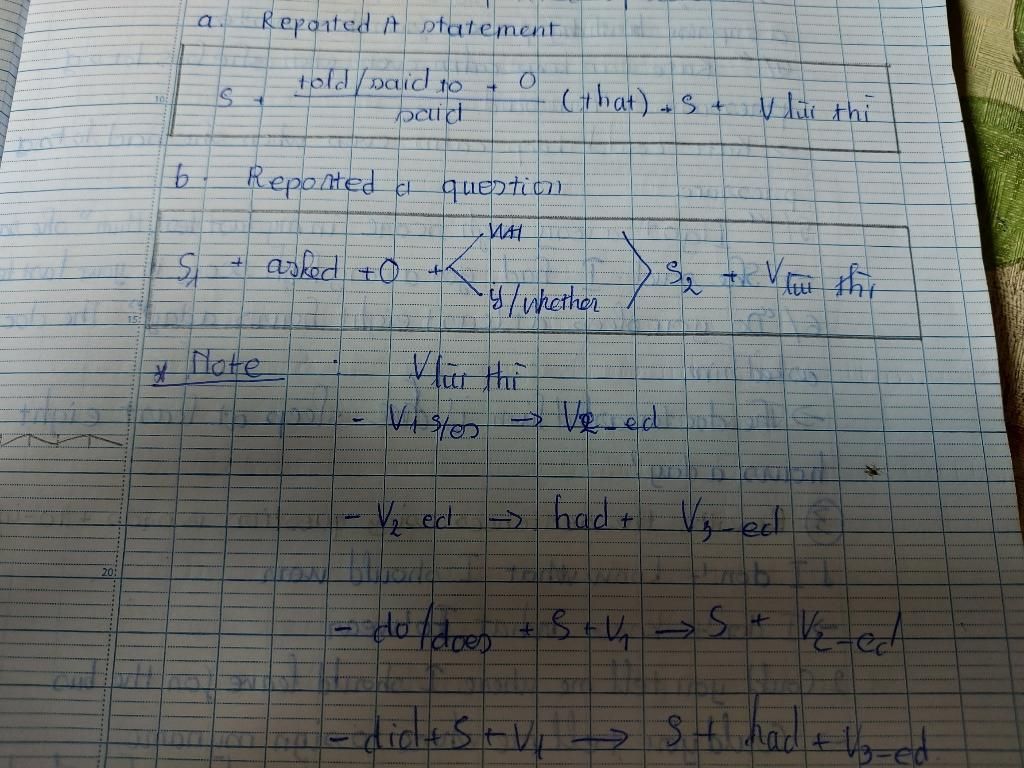 a. Reported A statement
S + told/said to + O (that) + S + V lùi thì
said
b. Reported a question
WH
S1 + asked + O + S2 + V lùi thì
If/whether
* Note : V lùi thì
- V1 s/es → V2-ed
- V2-ed → had + V3-ed
- do/does + S + V1 → S + V2-ed
- did + S + V1 → S + had + V3-ed